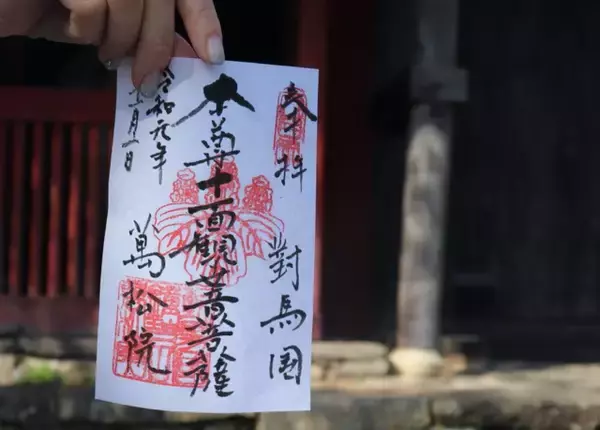 奉拝
對馬国
本尊十一面観音菩薩
萬松院
令和元年
五月一日